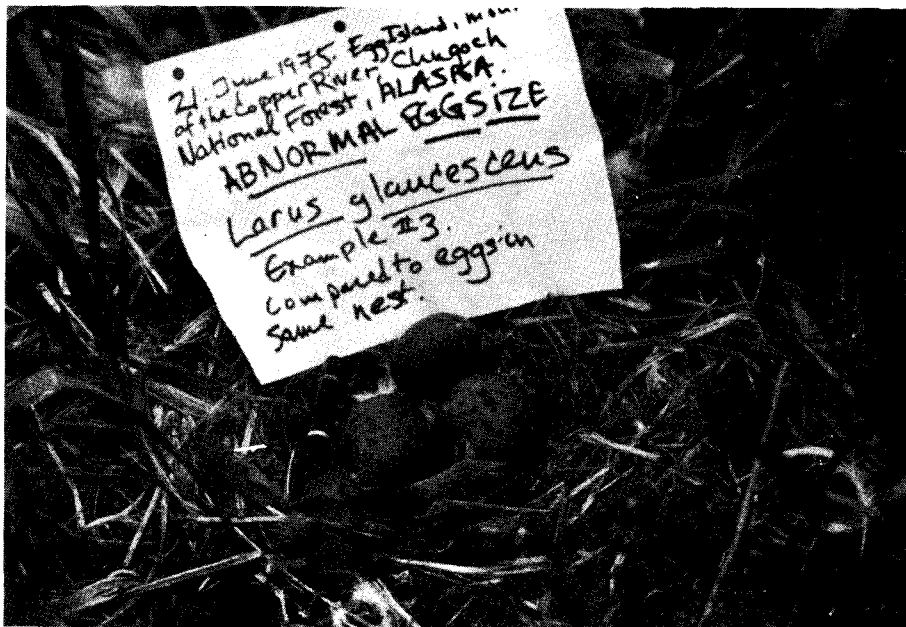 21. June 1975. Egg Island, mou.
of the Copper River, Chugach
National Forest, ALASKA.
ABNORMAL EGG SIZE
Larus glaucescens
Example #3.
compared to eggs in
same nest.